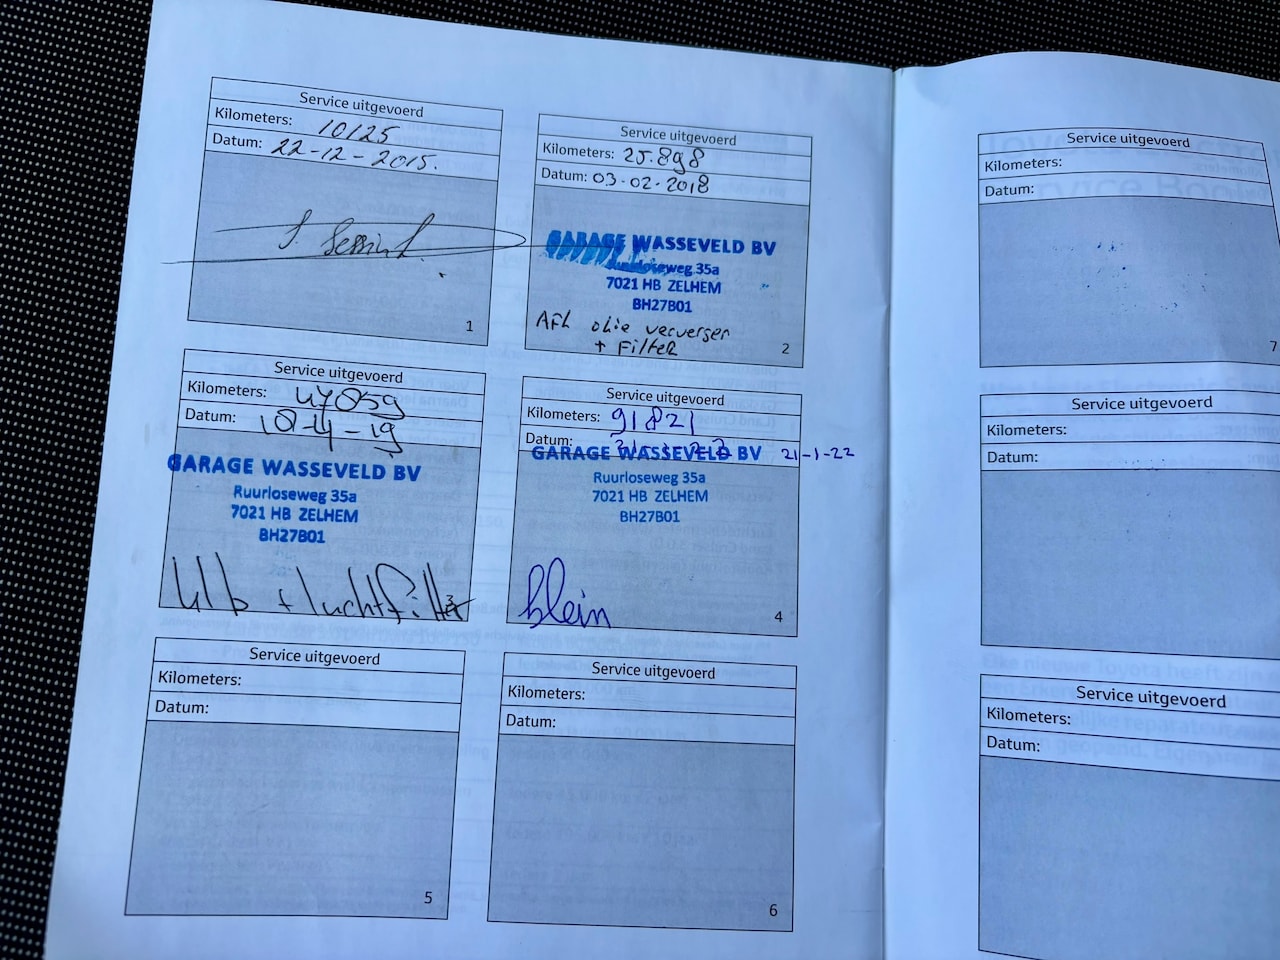 Service uitgevoerd
Kilometers: 10125
Datum: 22-12-2015.
1
Service uitgevoerd
Kilometers: 25.898
Datum: 03-02-2018
GARAGE WASSEVELD BV
Ruurloseweg 35a
7021 HB ZELHEM
BH27B01
AFL olie verversen
+ Filter
2
Service uitgevoerd
Kilometers: 47059
Datum: 18-4-19
GARAGE WASSEVELD BV
Ruurloseweg 35a
7021 HB ZELHEM
BH27B01
+ luchtfilter
3
Service uitgevoerd
Kilometers: 91821
Datum: 21-1-22
GARAGE WASSEVELD BV
Ruurloseweg 35a
7021 HB ZELHEM
BH27B01
klein
4
Service uitgevoerd
Kilometers:
Datum:
5
Service uitgevoerd
Kilometers:
Datum:
6
Service uitgevoerd
Kilometers:
Datum:
7
Service uitgevoerd
Kilometers:
Datum:
Service uitgevoerd
Kilometers:
Datum: